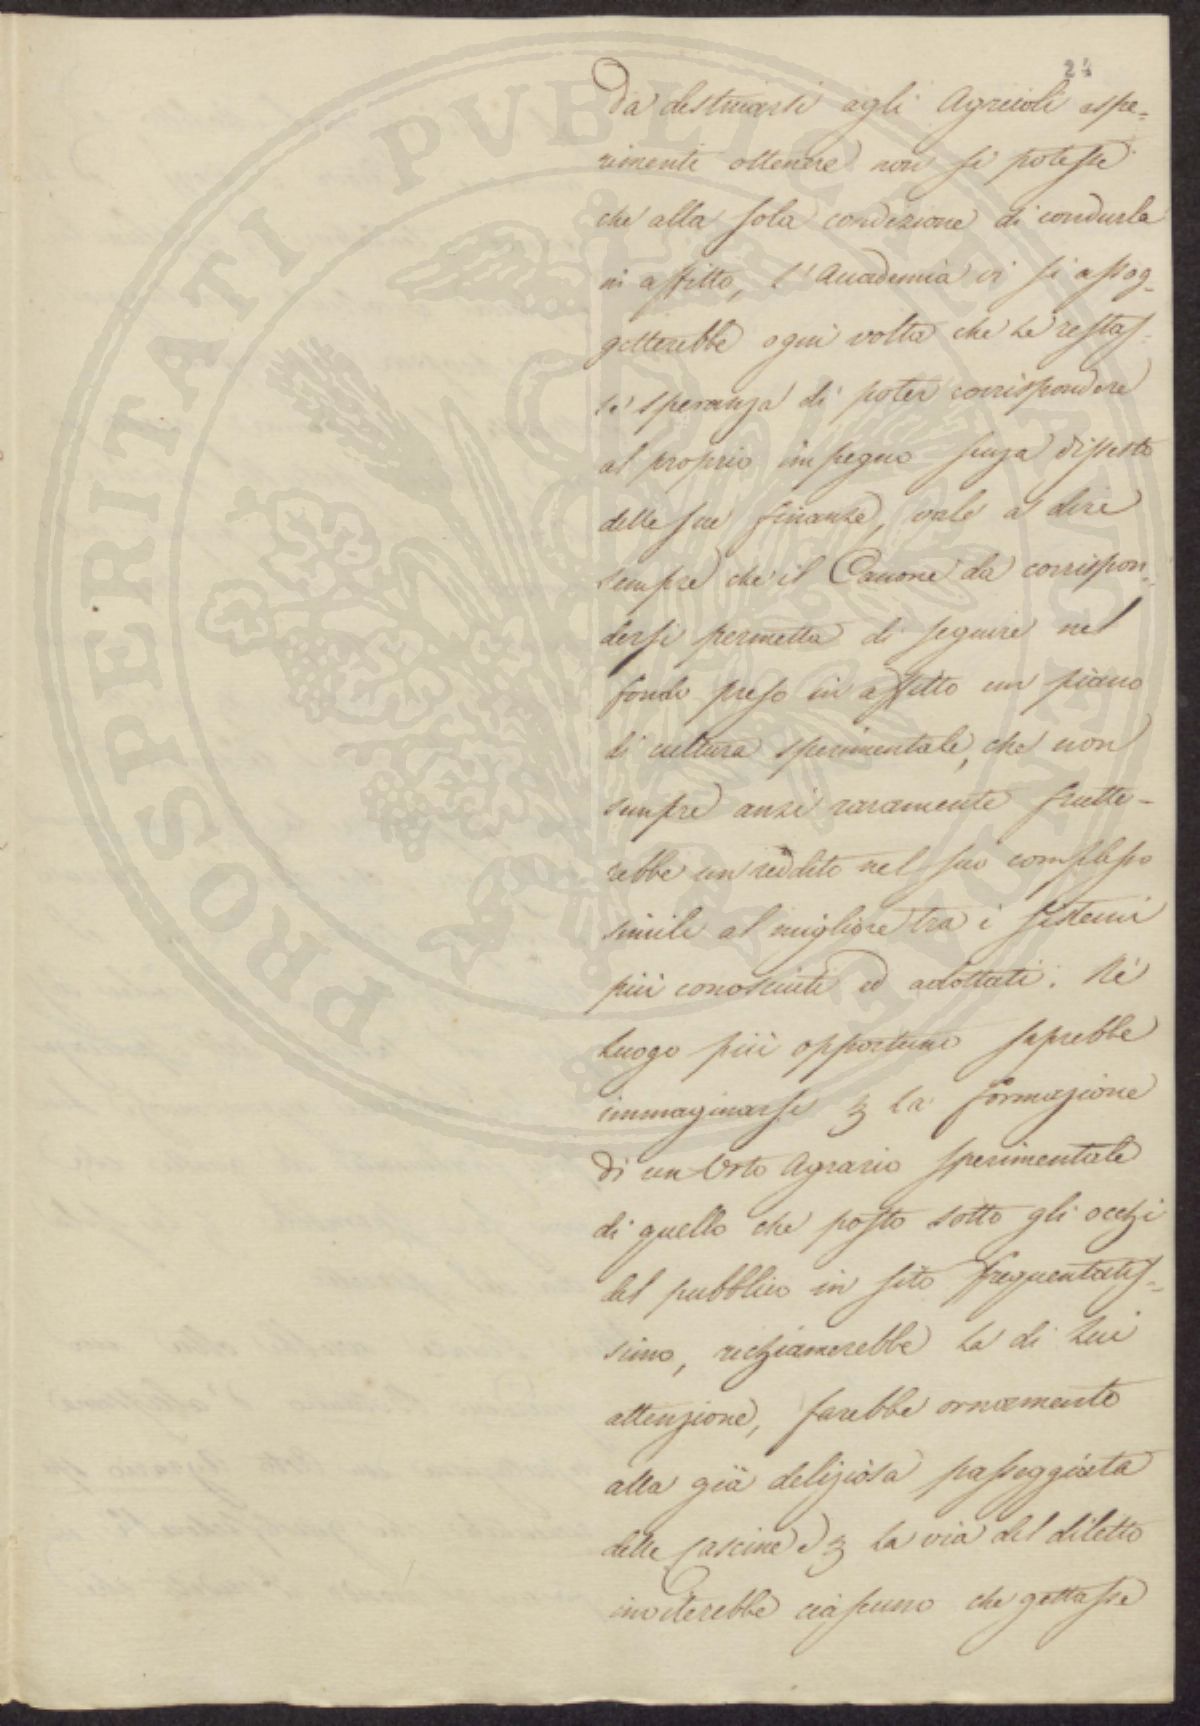 24
da destinarsi agli Agricoli espe-
rimenti ottenere non si potesse
che alla sola condizione di condurla
in affitto, l'Accademia vi si assog-
getterebbe ogni volta che Le restas-
se speranza di poter corrispondere
al proprio impegno senza dissesto
delle sue finanze, vale a dire
sempre che il Canone da corrispon-
dersi permetta di seguire nel
fondo preso in affitto un piano
di cultura sperimentale, che non
sempre anzi raramente frutte-
rebbe un reddito nel suo complesso
simile al migliore tra i sistemi
più conosciuti ed adottati. Nè
luogo più opportuno saprebbe
immaginarsi p la formazione
di un Orto Agrario sperimentale
di quello che posto sotto gli occhi
del pubblico in sito frequentatis-
simo, richiamerebbe la di Lui
attenzione, farebbe ornamento
alla già deliziosa passeggiata
delle Cascine e p la via del diletto
inviterebbe ciascuno che gettasse
PROSPERITATI PVBLICAE AVGENDAE